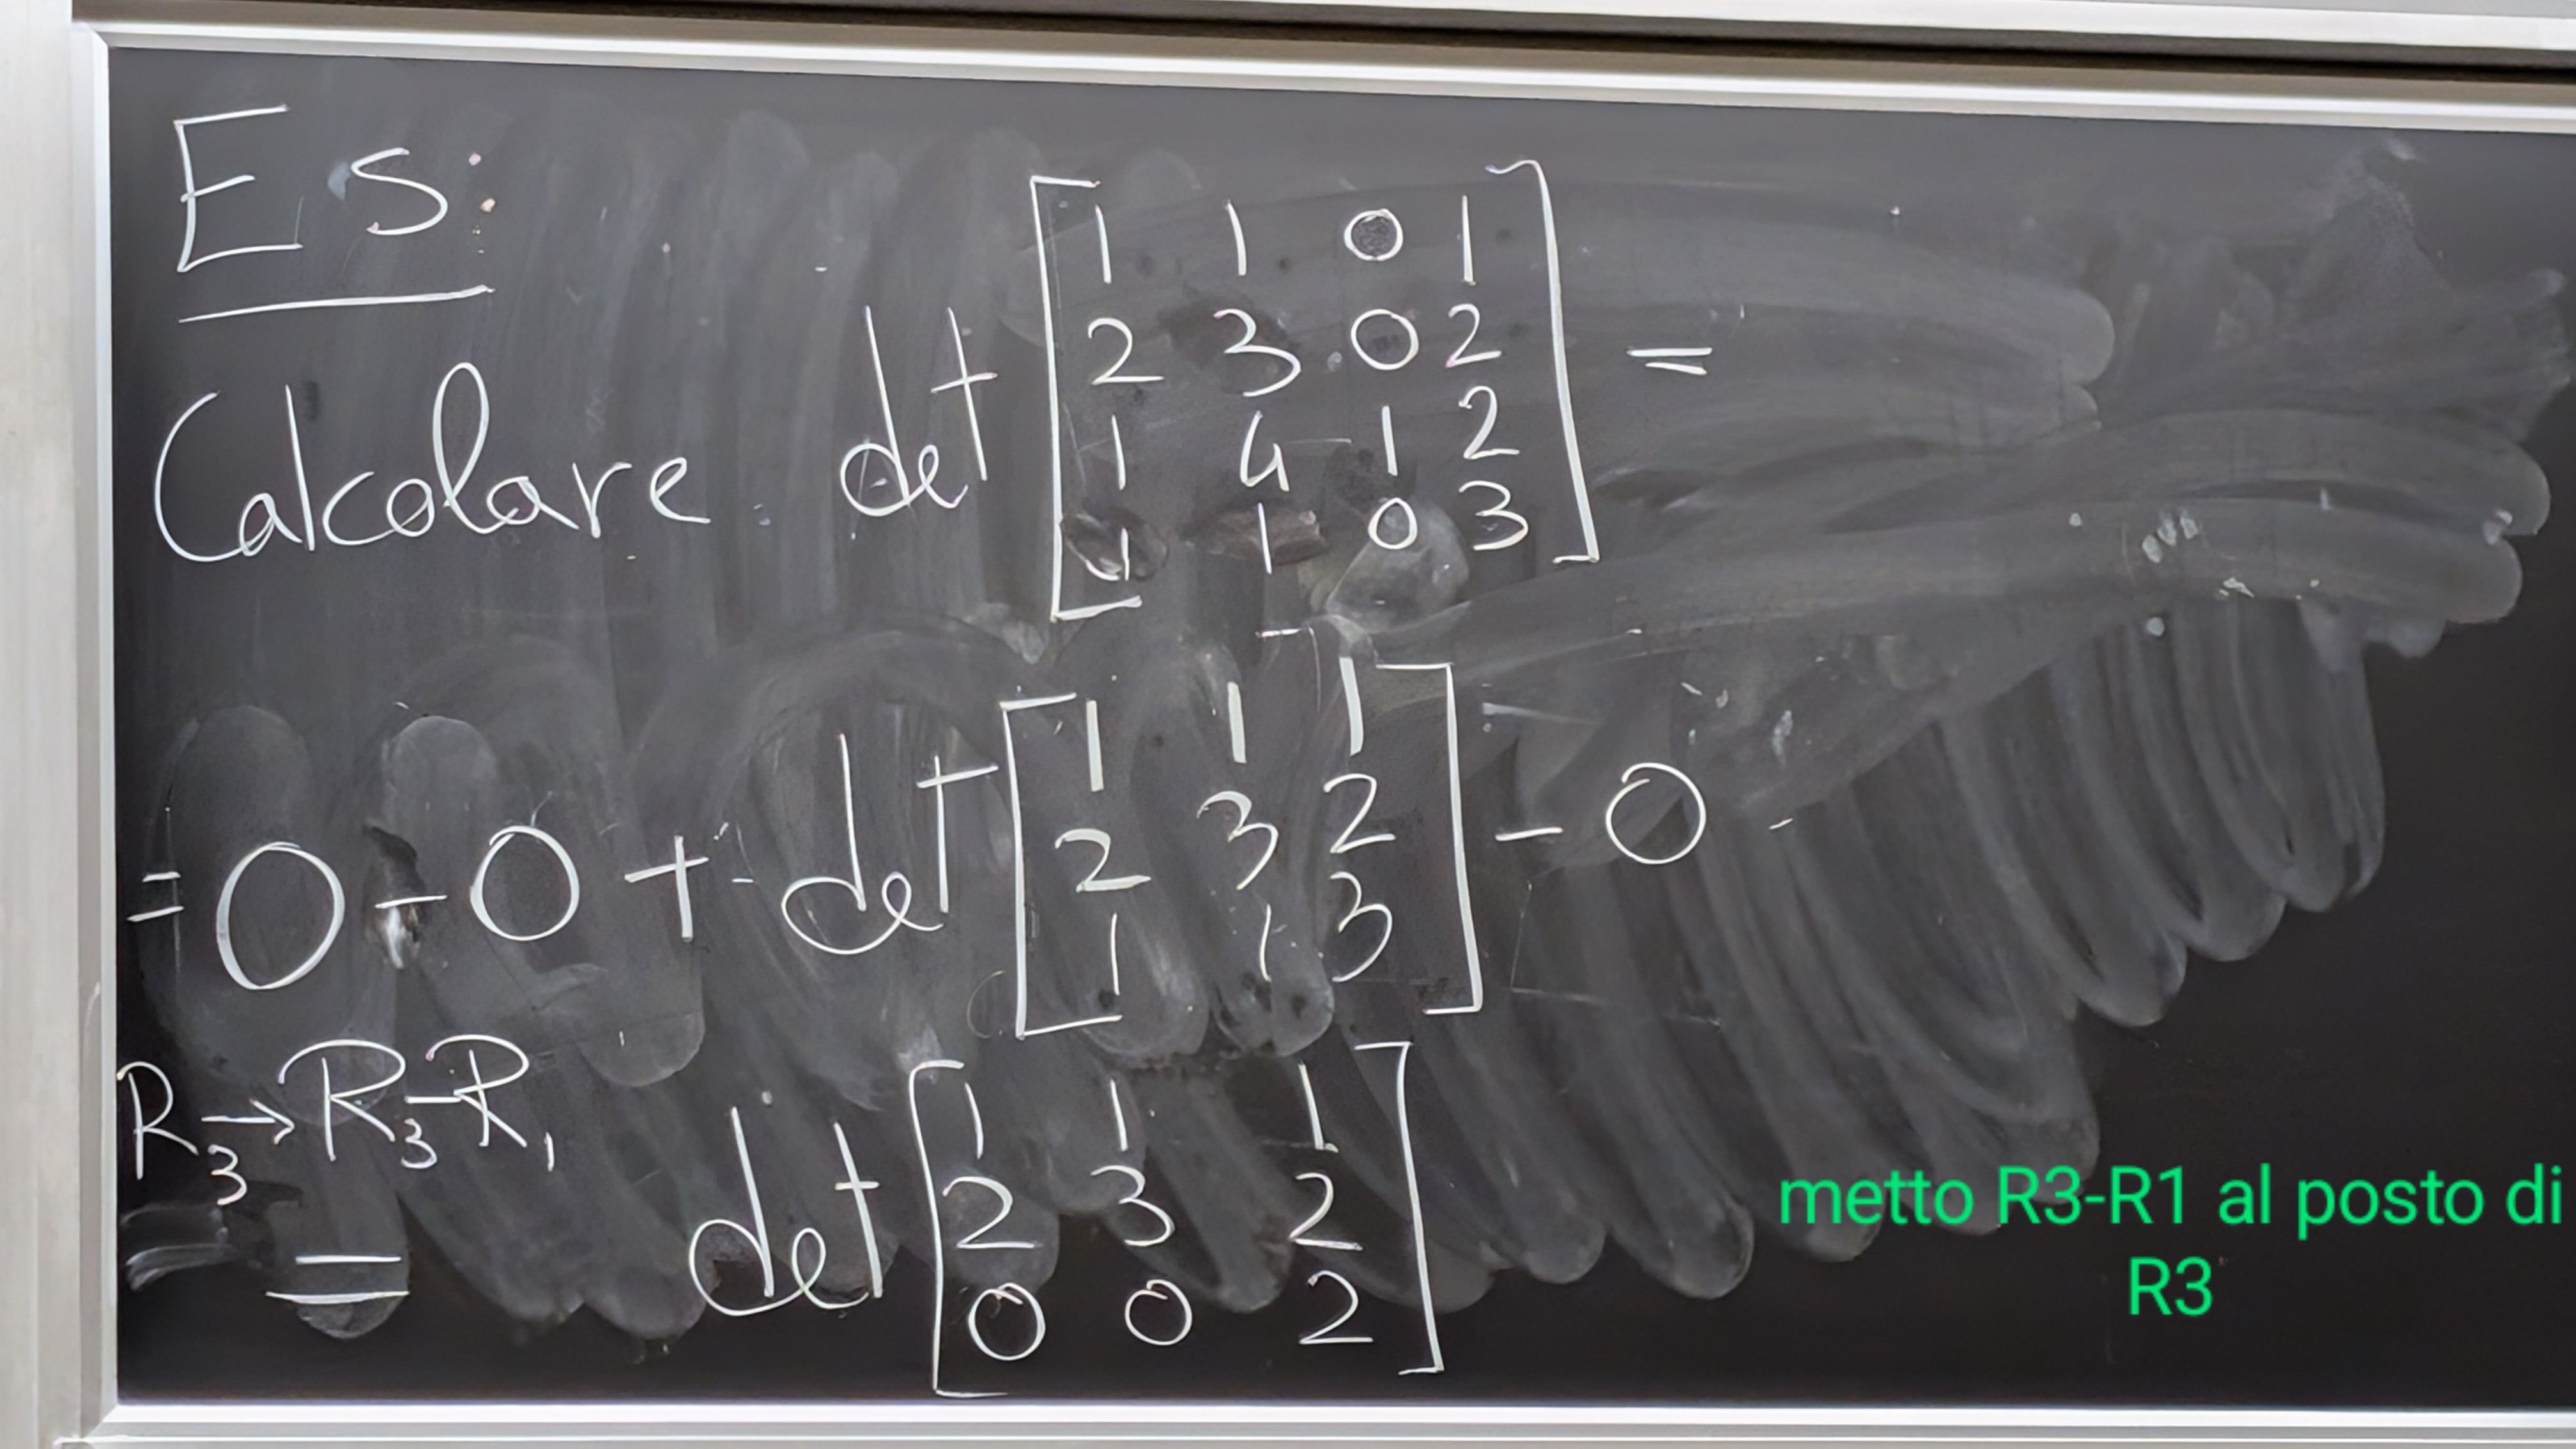 Es:
Calcolare det [ 1 1 0 1
2 3 0 2
1 4 1 2
1 1 0 3 ] =
= 0 - 0 + det [ 1 1 1
2 3 2
1 1 3 ] - 0
R3→R3-R1
= det [ 1 1 1
2 3 2
0 0 2 ]
metto R3-R1 al posto di
R3